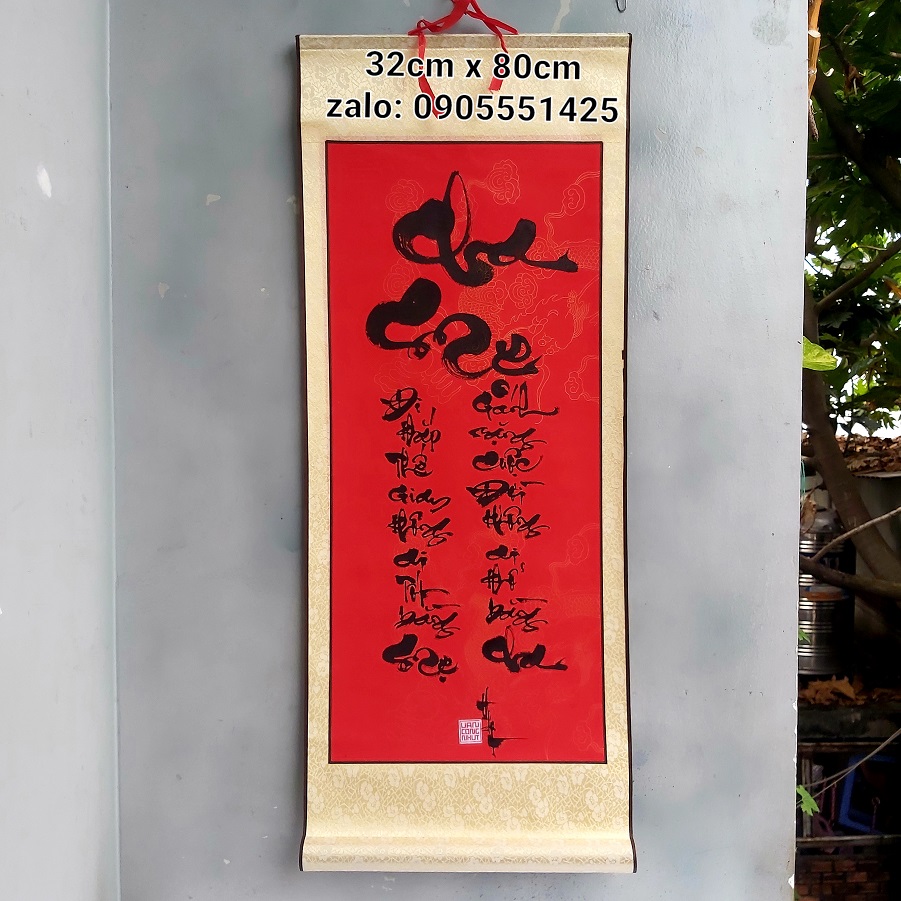 32cm x 80cm
zalo: 0905551425
Cha
Mẹ
Đi Khắp Thế Gian Không ai Tốt bằng Mẹ
Gánh nặng cuộc Đời Không ai Khổ bằng Cha
VAN
CONG
NHUT